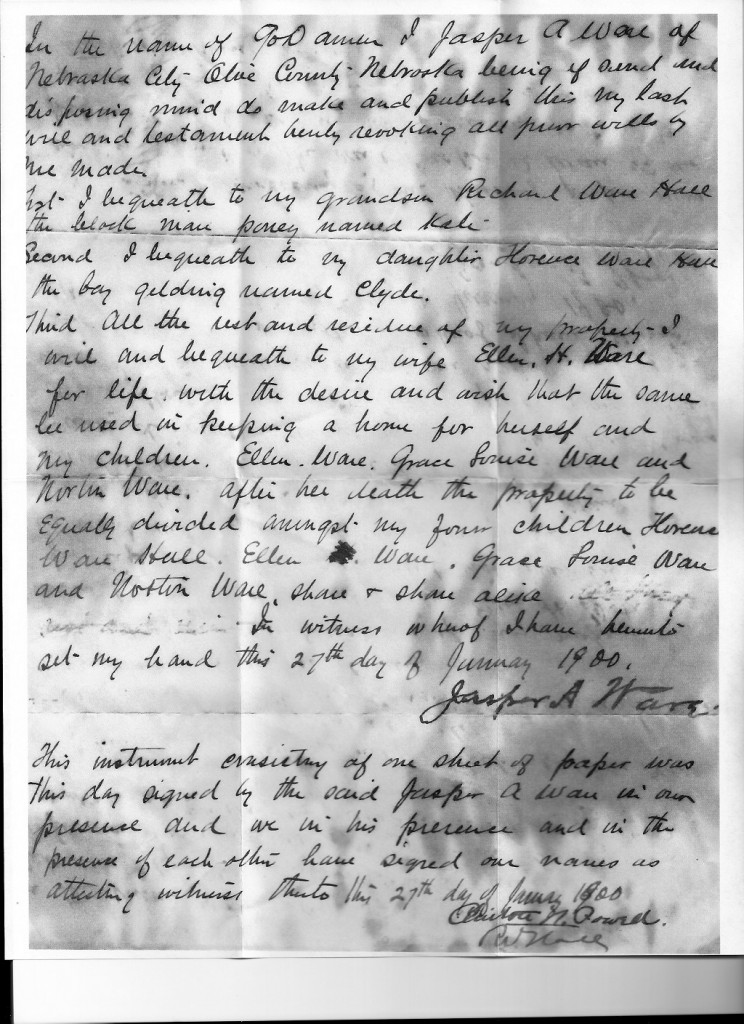 In the name of God amen I Jasper A Ware of
Nebraska City Otoe County Nebraska being of sound and
disposing mind do make and publish this my last
will and testament hereby revoking all prior wills by
me made.
First I bequeath to my grandson Richard Ware Hall
the black mare poney named Kate
Second I bequeath to my daughter Florence Ware Hall
the bay gelding named Clyde.
Third All the rest and residue of my property I
will and bequeath to my wife Ellen. H. Ware
for life. with the desire and wish that the same
be used in keeping a home for herself and
my children. Ellen. Ware. Grace Louise Ware and
Norton Ware. after her death the property to be
Equally divided amongst my four children Florence
Ware Hall. Ellen Ware. Grace Louise Ware
and Norton Ware. share & share alike
In witness whereof I have hereunto
set my hand this 27th day of January 1900.
Jasper A Ware
This instrument consisting of one sheet of paper was
this day signed by the said Jasper A Ware in our
presence and we in his presence and in the
presence of each other have signed our names as
attesting witness thereto this 27th day of January 1900
N.